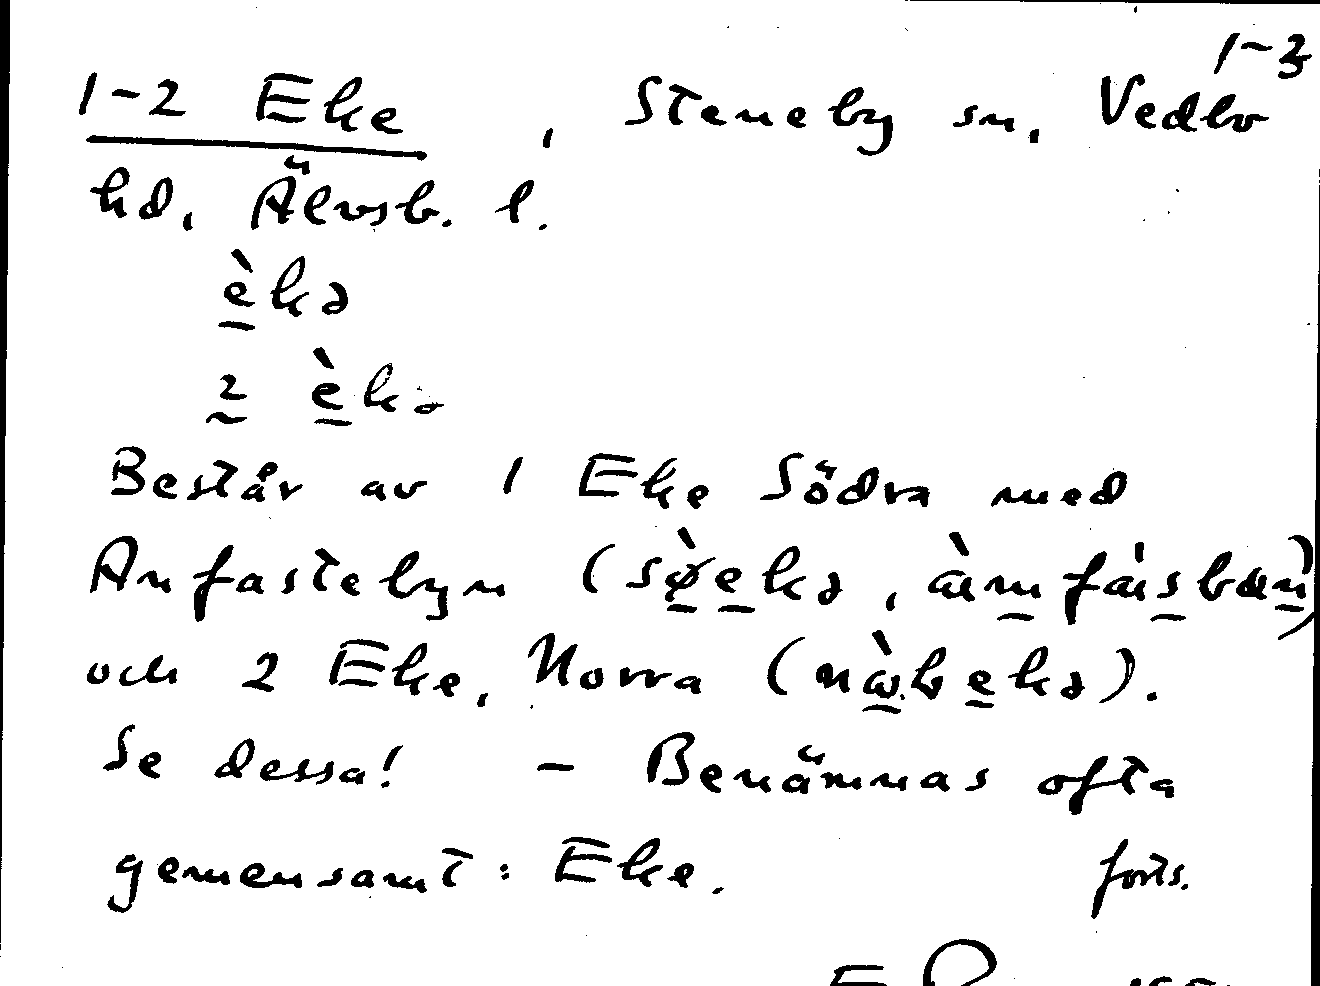 1-3
1-2 Eke, Steneby sn, Vedbo
hd, Älvsb. l.
èkə
2 èkə
Består av 1 Eke Södra med
Anfastebyn (sø̀ekə,
och 2 Eke, Norra
Se dessa! - Benämnas ofta
gemensamt: Eke. forts.